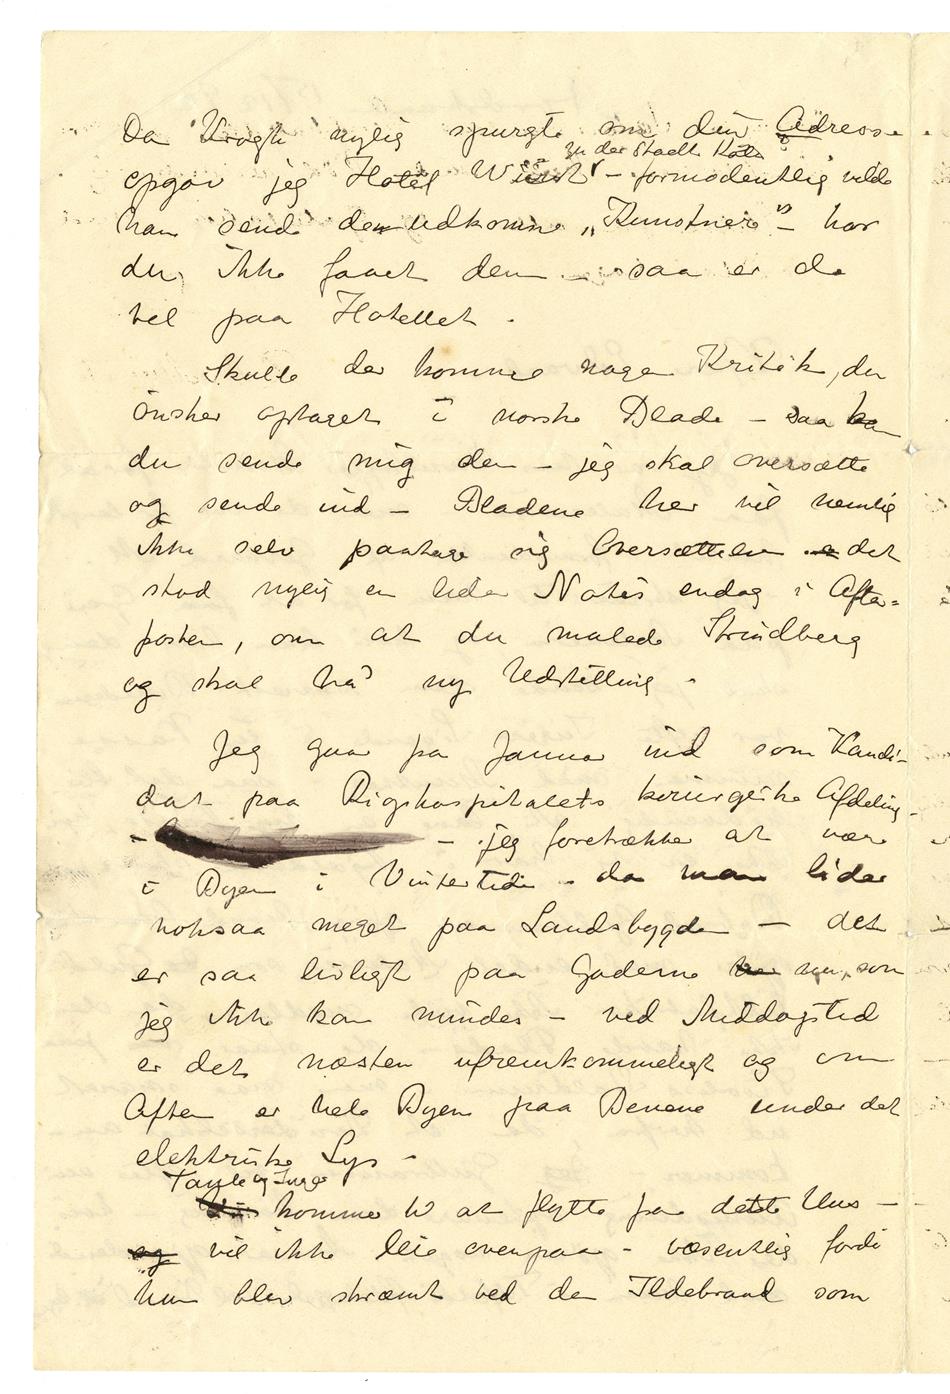 Da Kragh nylig spurgte om din Adresse
zu der Stadt Köln
opgav jeg Hotel – formodentlig vilde
han sende den udkomne „Kunstnere" – har
du ikke faaet dem – saa er de
vel paa Hotellet.
Skulle der komme nogen Kritik, du
ønsker optaget i norske Blade – saa kan
du sende mig den – jeg skal oversætte
og sende ind – Bladene her vil nemlig
ikke selv paatage sig Oversættelsen det
stod nylig en liden Notis endog i Aften=
posten, om at du malede Strindberg
og skal ha' ny Udstilling.
Jeg gaar fra Januar ind som Kandi-
dat paa Rigshospitalets kirurgiske Afdeling
– – jeg foretrækker at være
i Byen i Vintertiden – da man lider
noksaa meget paa Landsbygden – det
er saa livligt paa Gaderne nu, som
jeg ikke kan mindes – ved Middagstid
er det næsten ufremkommeligt og om
Aften er hele Byen paa Benene under det
elektriske Lys –
Tante og Inger
komme til at flytte fra dette Hus –
vil ikke leie ovenpaa – væsentlig fordi
hun blev skræmt ved den Ildebrand som